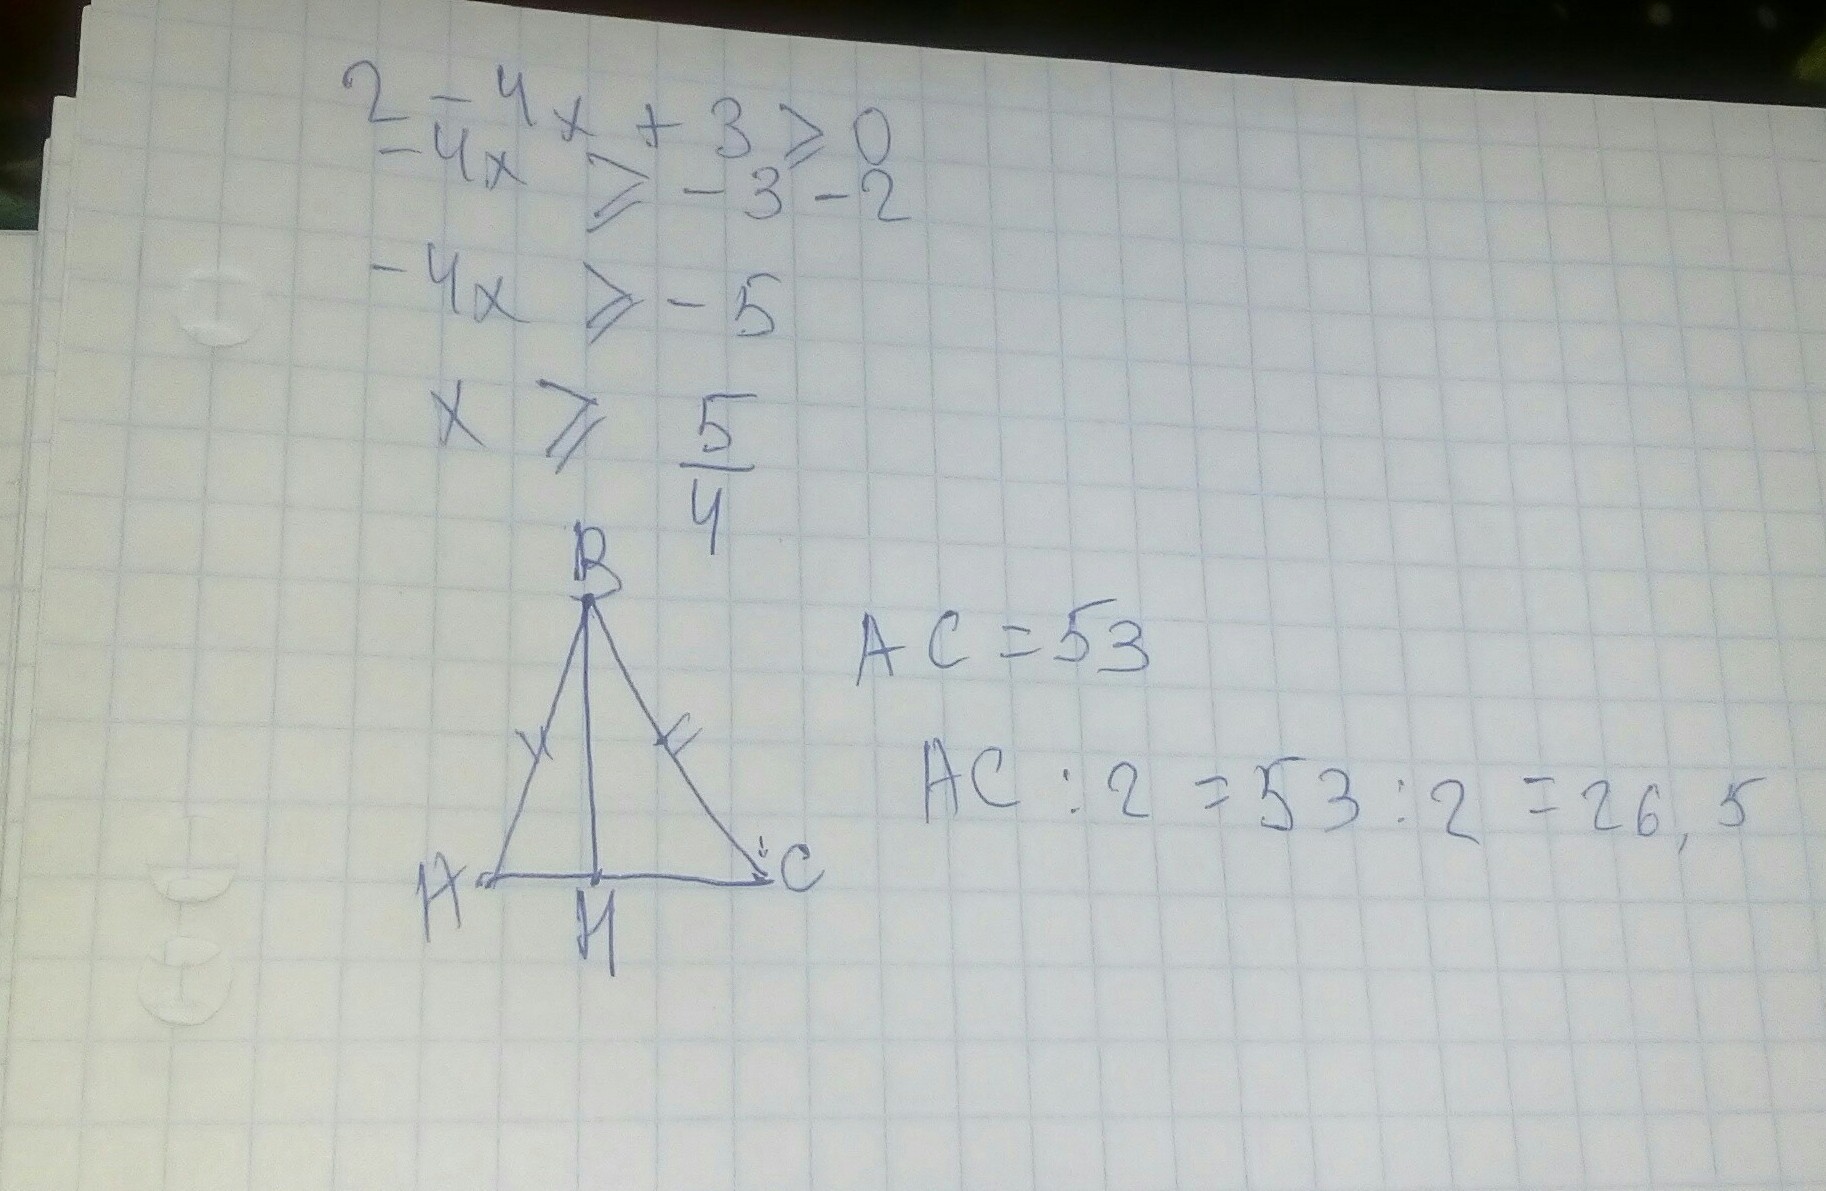 2 - 4x + 3 ⩾ 0
-4x ⩾ -3 -2
-4x ⩾ -5
x ⩾ 5/4
B
A H C
AC = 53
AC : 2 = 53 : 2 = 26,5